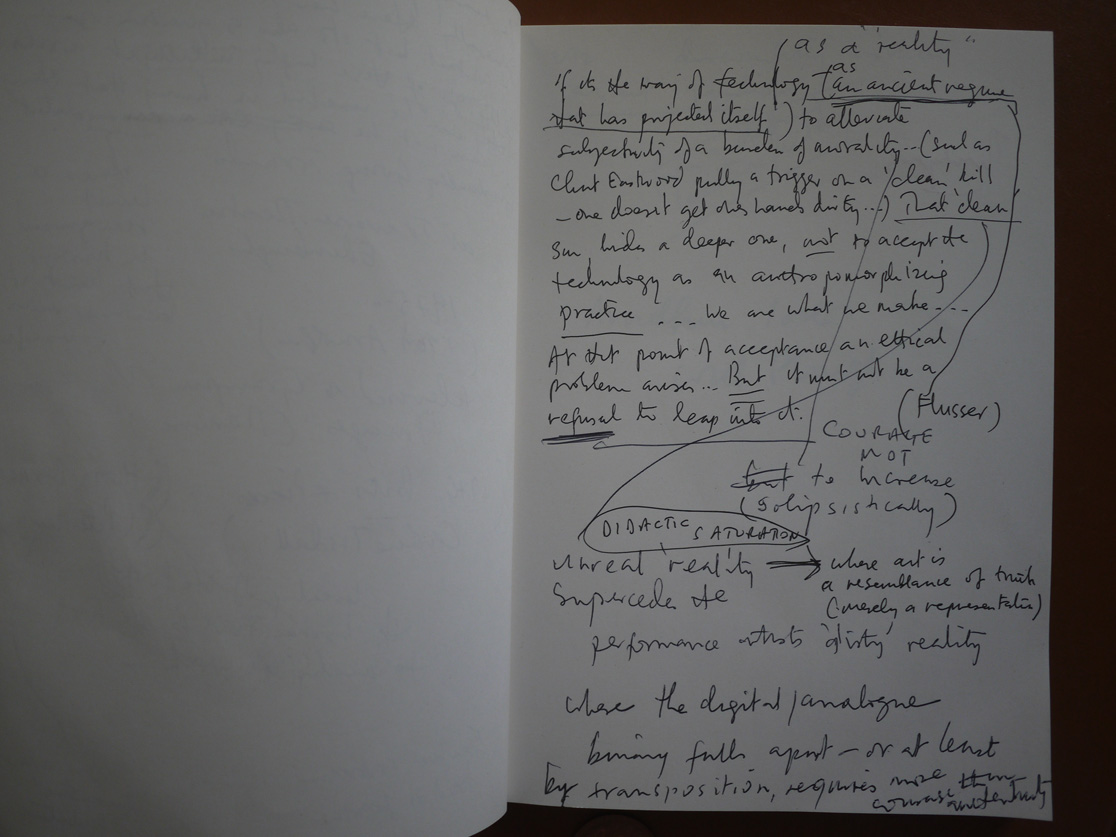 as a "reality"
as
if its the way of technology (an ancient regime
that has projected itself) to alleviate
subjectivity of a burden of morality... (such as
Clint Eastwood pulling a trigger on a 'clean' kill
– one doesn't get ones hands dirty...) That 'clean'
sin, hides a deeper one, not to accept the
technology as an anthropomorphizing
practice ... We are what we make ...
At that point of acceptance an ethical
problem arises... But it must not be a
refusal to leap into it.
(Flusser)
COURAGE
NOT
to increase
(solipsistically)
DIDACTIC SATURATION
unreal 'reality'
where art is
a resemblance of truth
(merely a representation)
Supercedes the
performance artists 'dirty' reality
where the digital/analogue
binary falls apart – or at least
by transposition, requires more than
courage